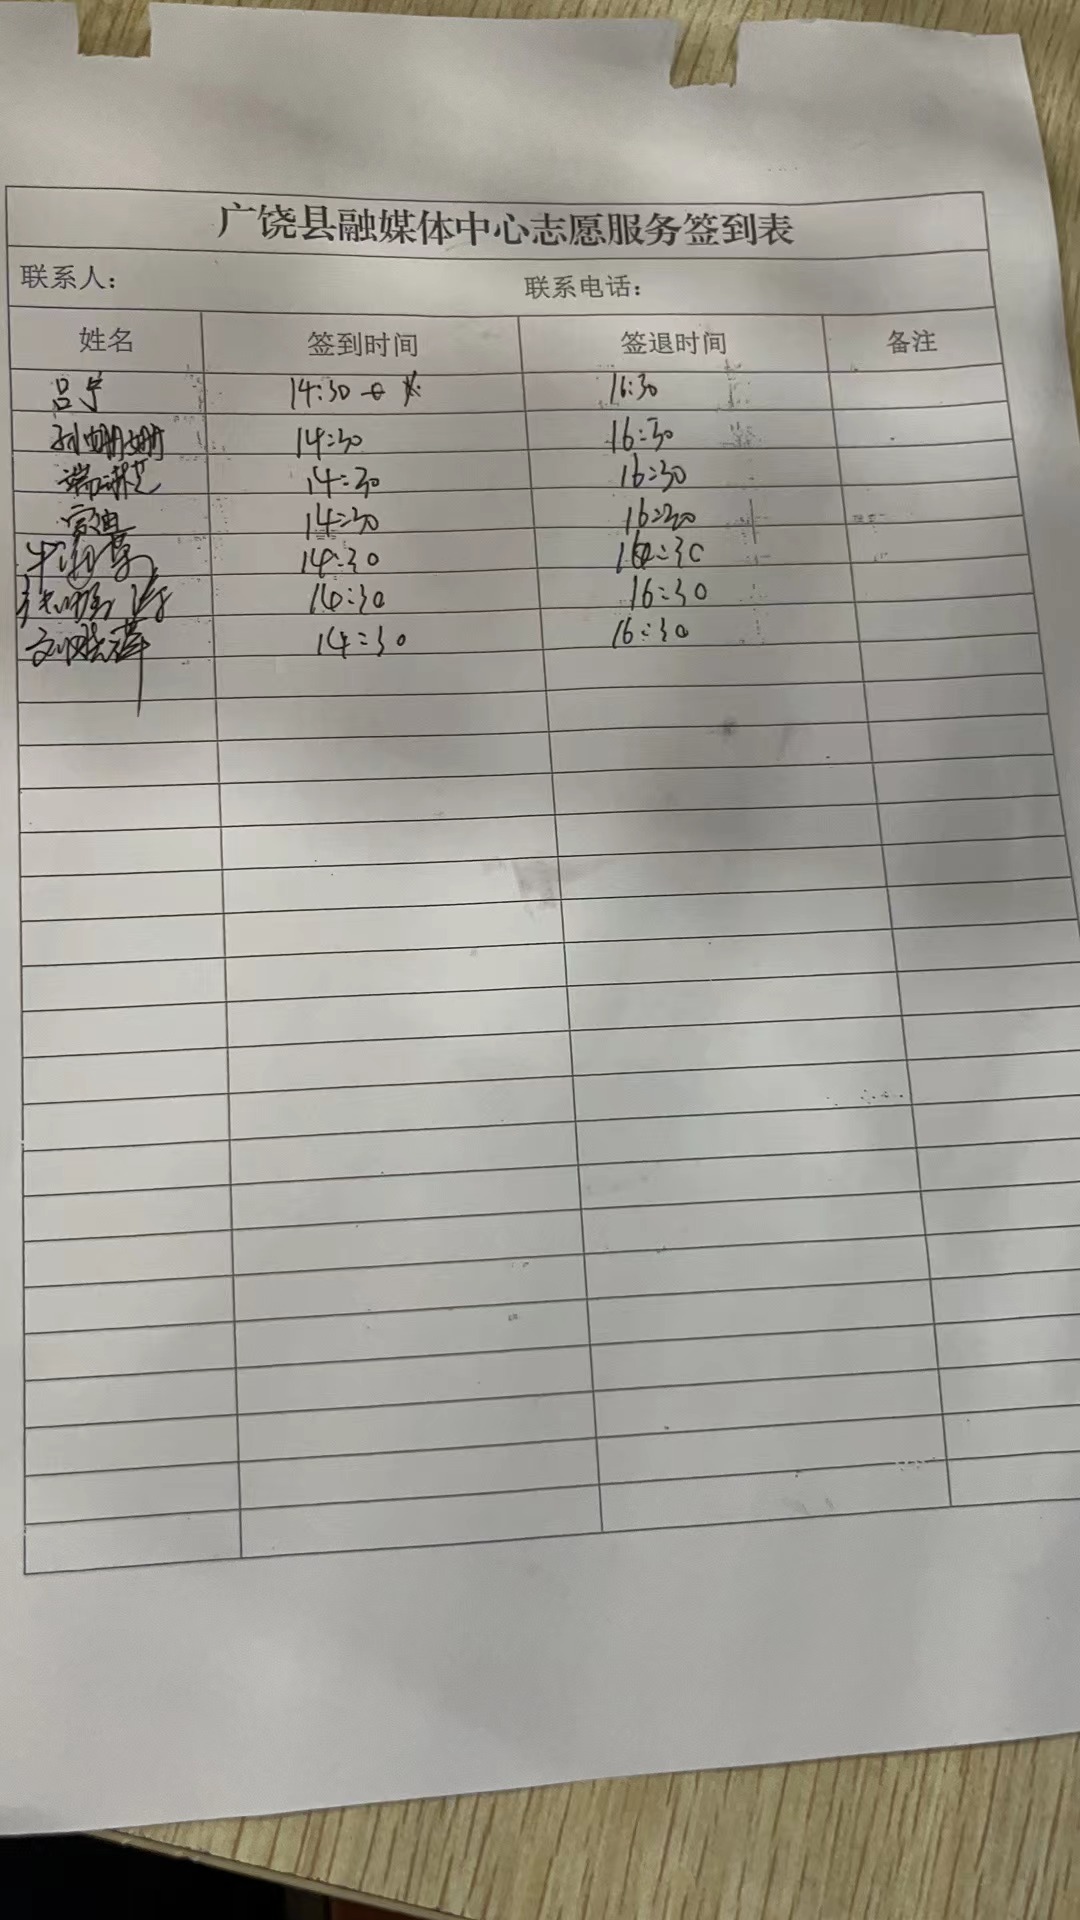 广饶县融媒体中心志愿服务签到表
联系人： 联系电话：
姓名 签到时间 签退时间 备注
吕宁 14:30 16:30
孙姗姗 14:30 16:30
14:30 16:30
14:30 16:30
14:30 16:30
14:30 16:30
14:30 16:30